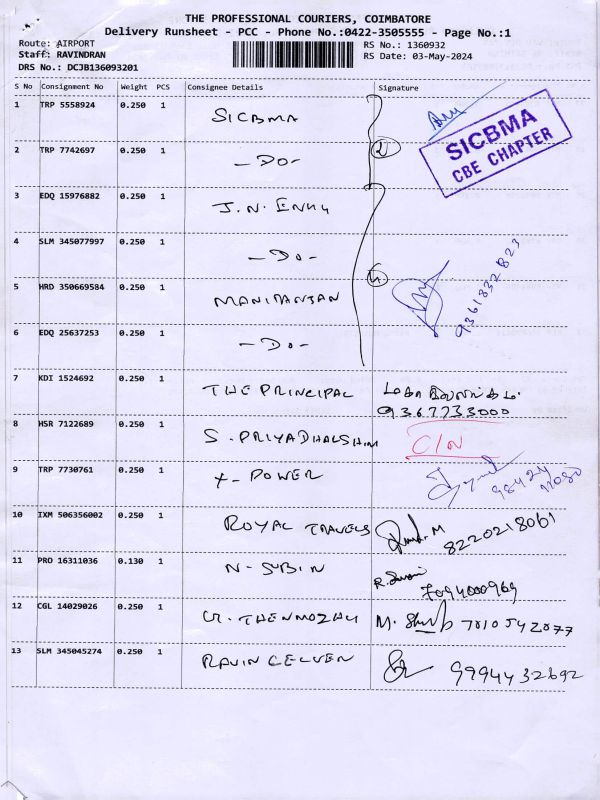 THE PROFESSIONAL COURIERS, COIMBATORE
Delivery Runsheet - PCC - Phone No.:0422-3505555 - Page No.:1
Route: AIRPORT RS No.: 1360932
Staff: RAVINDRAN RS Date: 03-May-2024
DRS No.: DCJB136093201
S No Consignment No Weight PCS Consignee Details Signature
1 TRP 5558924 0.250 1 SICBMA
SICBMA
CBE CHAPTER
2 TRP 7742697 0.250 1 -DO- 2
3 EDQ 15976882 0.250 1 J.N.
4 SLM 345077997 0.250 1 -DO-
9361832823
5 HRD 350669584 0.250 1 4
6 EDQ 25637253 0.250 1 -DO-
7 KDI 1524692 0.250 1 THE PRINCIPAL
9367733000
8 HSR 7122689 0.250 1 S. PRIYADHALSHINI C/N
9 TRP 7730761 0.250 1 X-POWER
98424
10 IXM 506356002 0.250 1 ROYAL TRAVELS M 8220218061
11 PRO 16311036 0.130 1 N-SUBIN R. 7094000969
12 CGL 14029026 0.250 1 THENMOZHI M. 7010542077
13 SLM 345045274 0.250 1 RAVIN CELVEN 9994432692